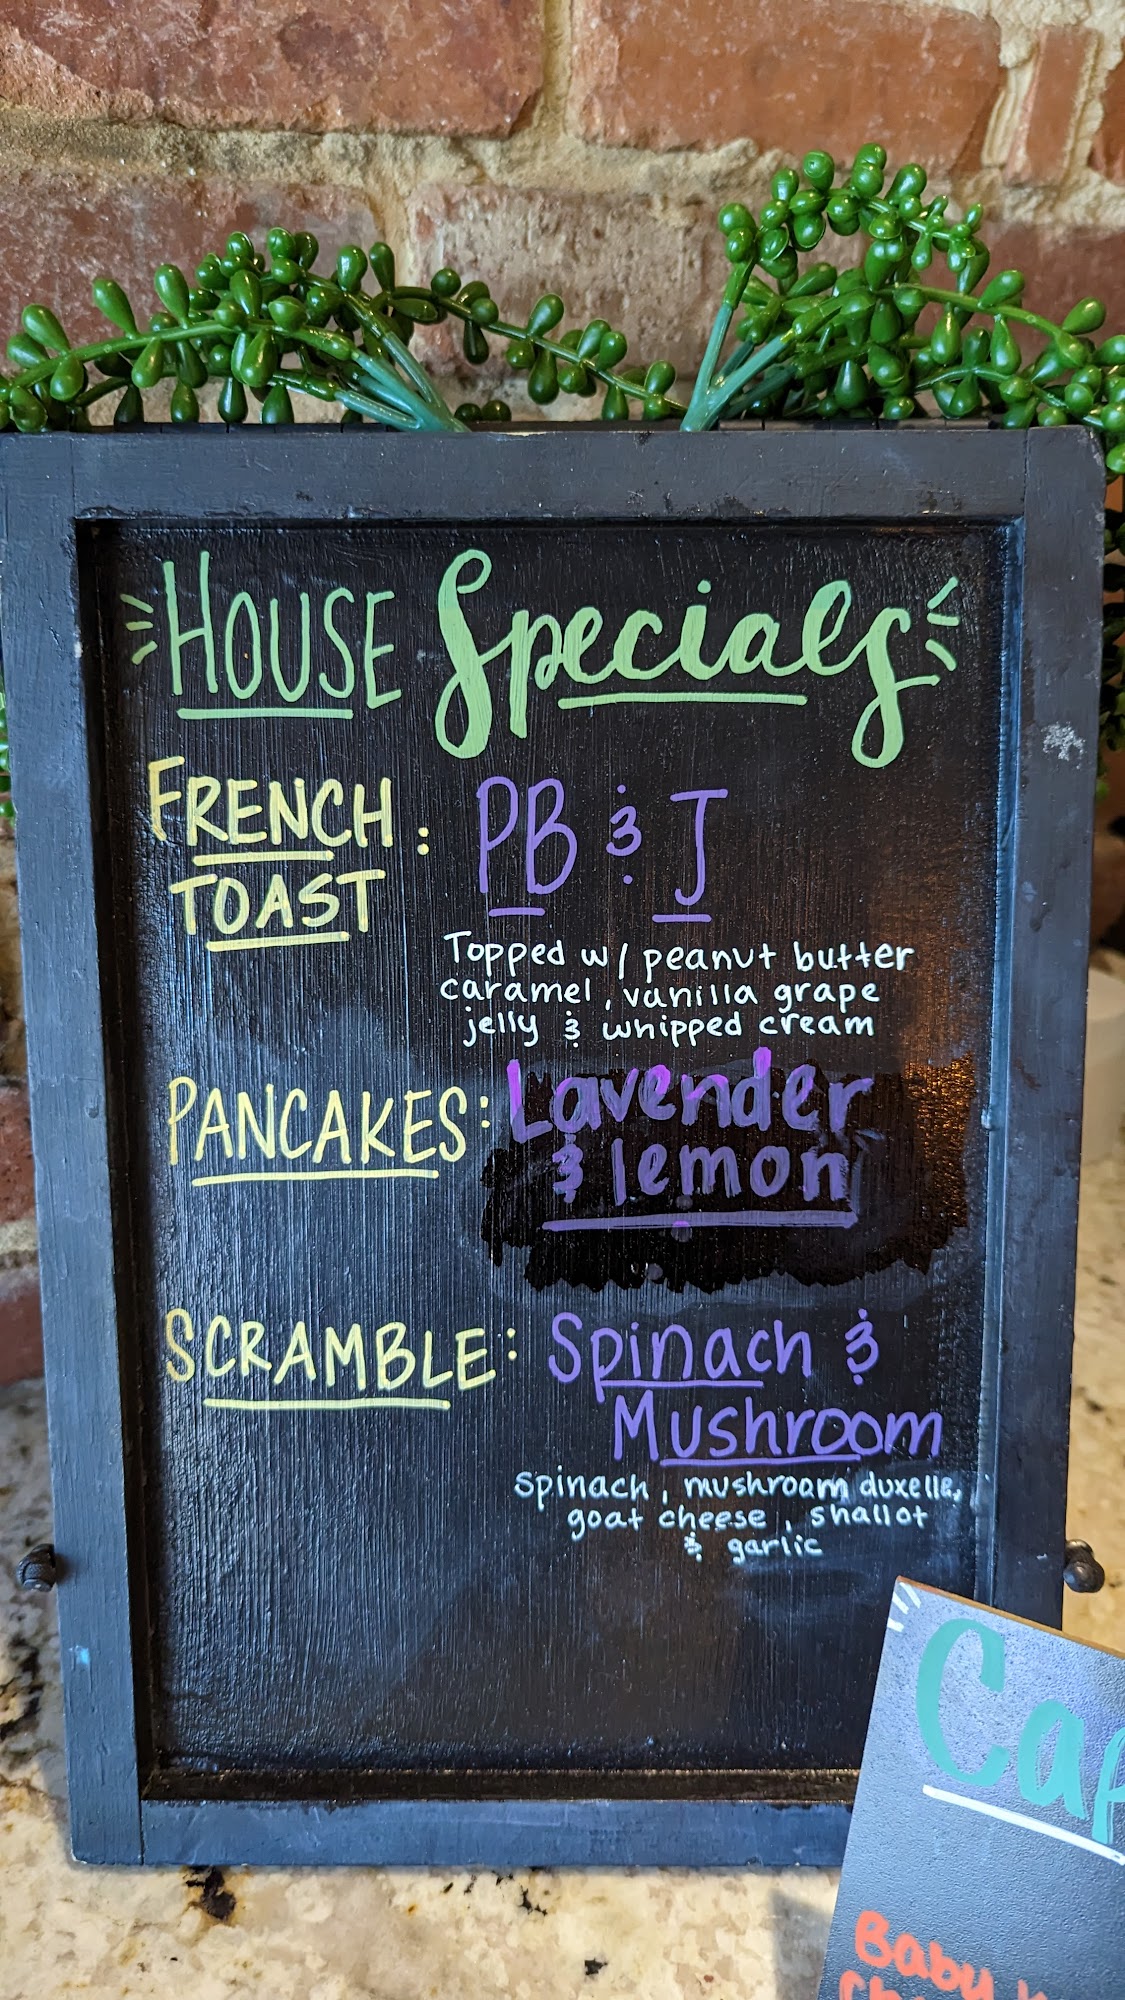 HOUSE Specials
FRENCH TOAST : PB & J
Topped w/ peanut butter
caramel, vanilla grape
jelly & whipped cream
PANCAKES: Lavender
& lemon
SCRAMBLE: Spinach &
Mushroom
spinach, mushroom duxelle,
goat cheese, shallot
& garlic
Baby